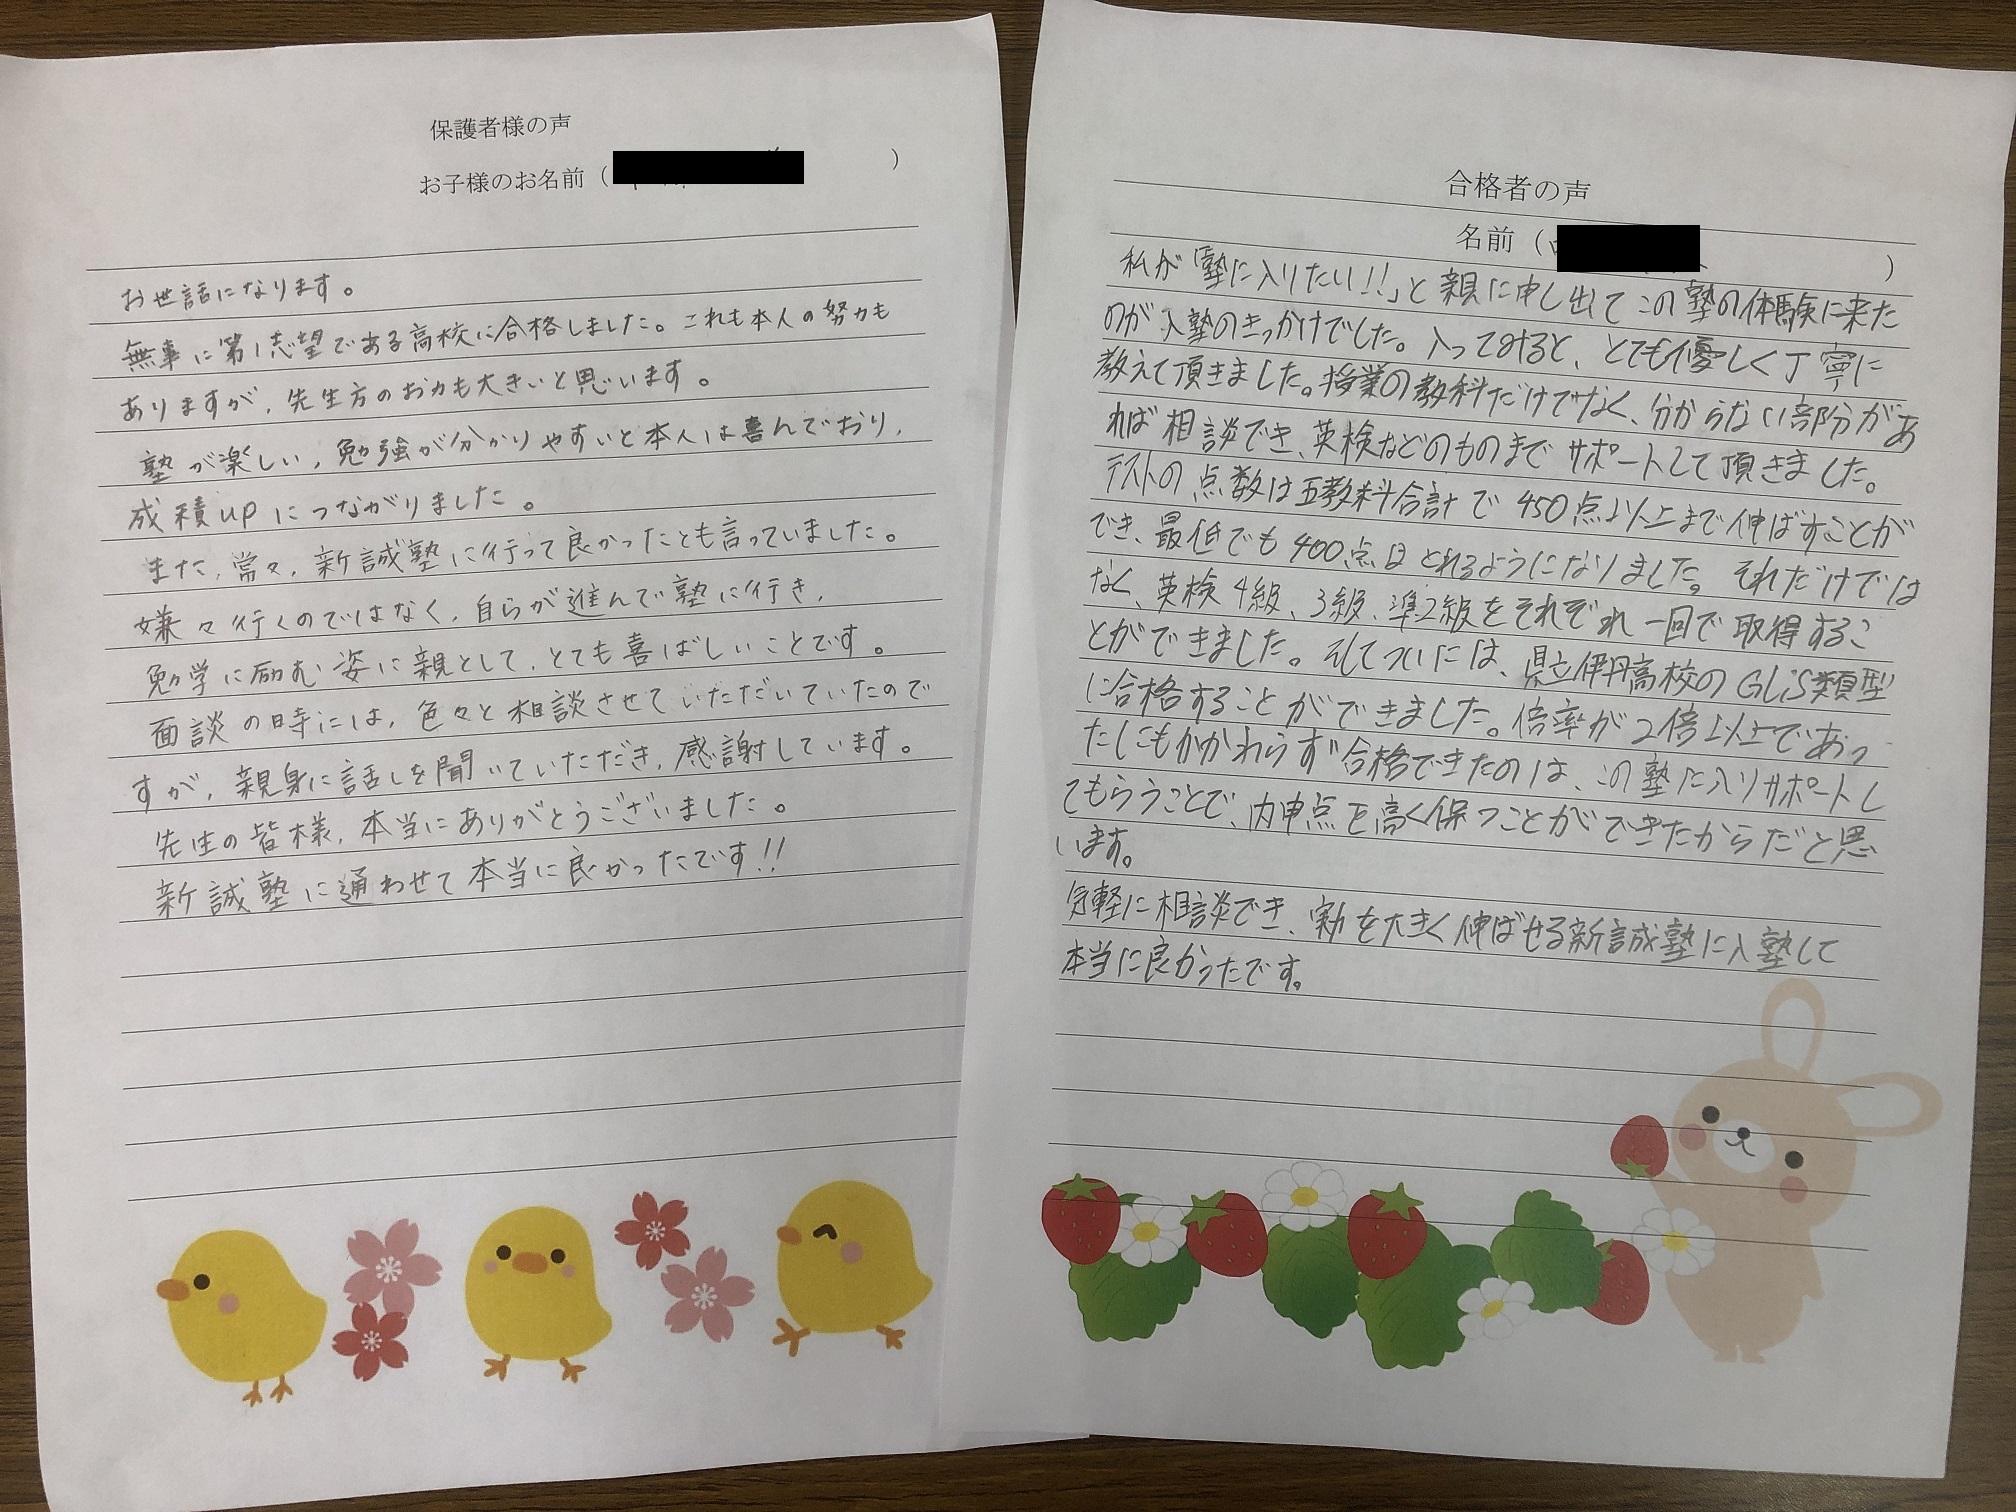 保護者様の声
お子様のお名前（ ）
お世話になります。
無事に第1志望である高校に合格しました。これも本人の努力も
ありますが、先生方のお力も大きいと思います。
塾が楽しい、勉強が分かりやすいと本人は喜んでおり、
成積upにつながりました。
また、常々、新誠塾に行って良かったとも言っていました。
嫌々行くのではなく、自らが進んで塾に行き、
勉学に励む姿に親として、とても喜ばしいことです。
面談の時には、色々と相談させていただいていたので
すが、親身に話しを聞いていただき、感謝しています。
先生の皆様、本当にありがとうございました。
新誠塾に通わせて本当に良かったです!!
合格者の声
名前（ ）
私が「塾に入りたい!!」と親に申し出てこの塾の体験に来た
のが入塾のきっかけでした。入ってみると、とても優しく丁寧に
教えて頂きました。授業の教科だけでなく、分からない部分があ
れば相談でき、英検などのものまでサポートして頂きました。
テストの点数は五教科合計で450点以上まで伸ばすことが
でき、最低でも400点はとれるようになりました。それだけでは
なく、英検4級、3級、準2級をそれぞれ一回で取得するこ
とができました。そしてついには、県立伊丹高校のGLiS類型
に合格することができました。倍率が2倍以上であっ
たにもかかわらず合格できたのは、この塾に入りサポートし
てもらうことで、内申点を高く保つことができたからだと思
います。
気軽に相談でき、実力を大きく伸ばせる新誠塾に入塾して
本当に良かったです。